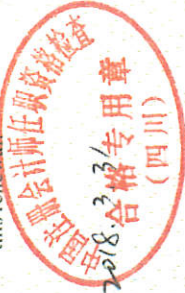 中国注册会计师任职资格检查
合格专用章
(四川)
2018.3.31